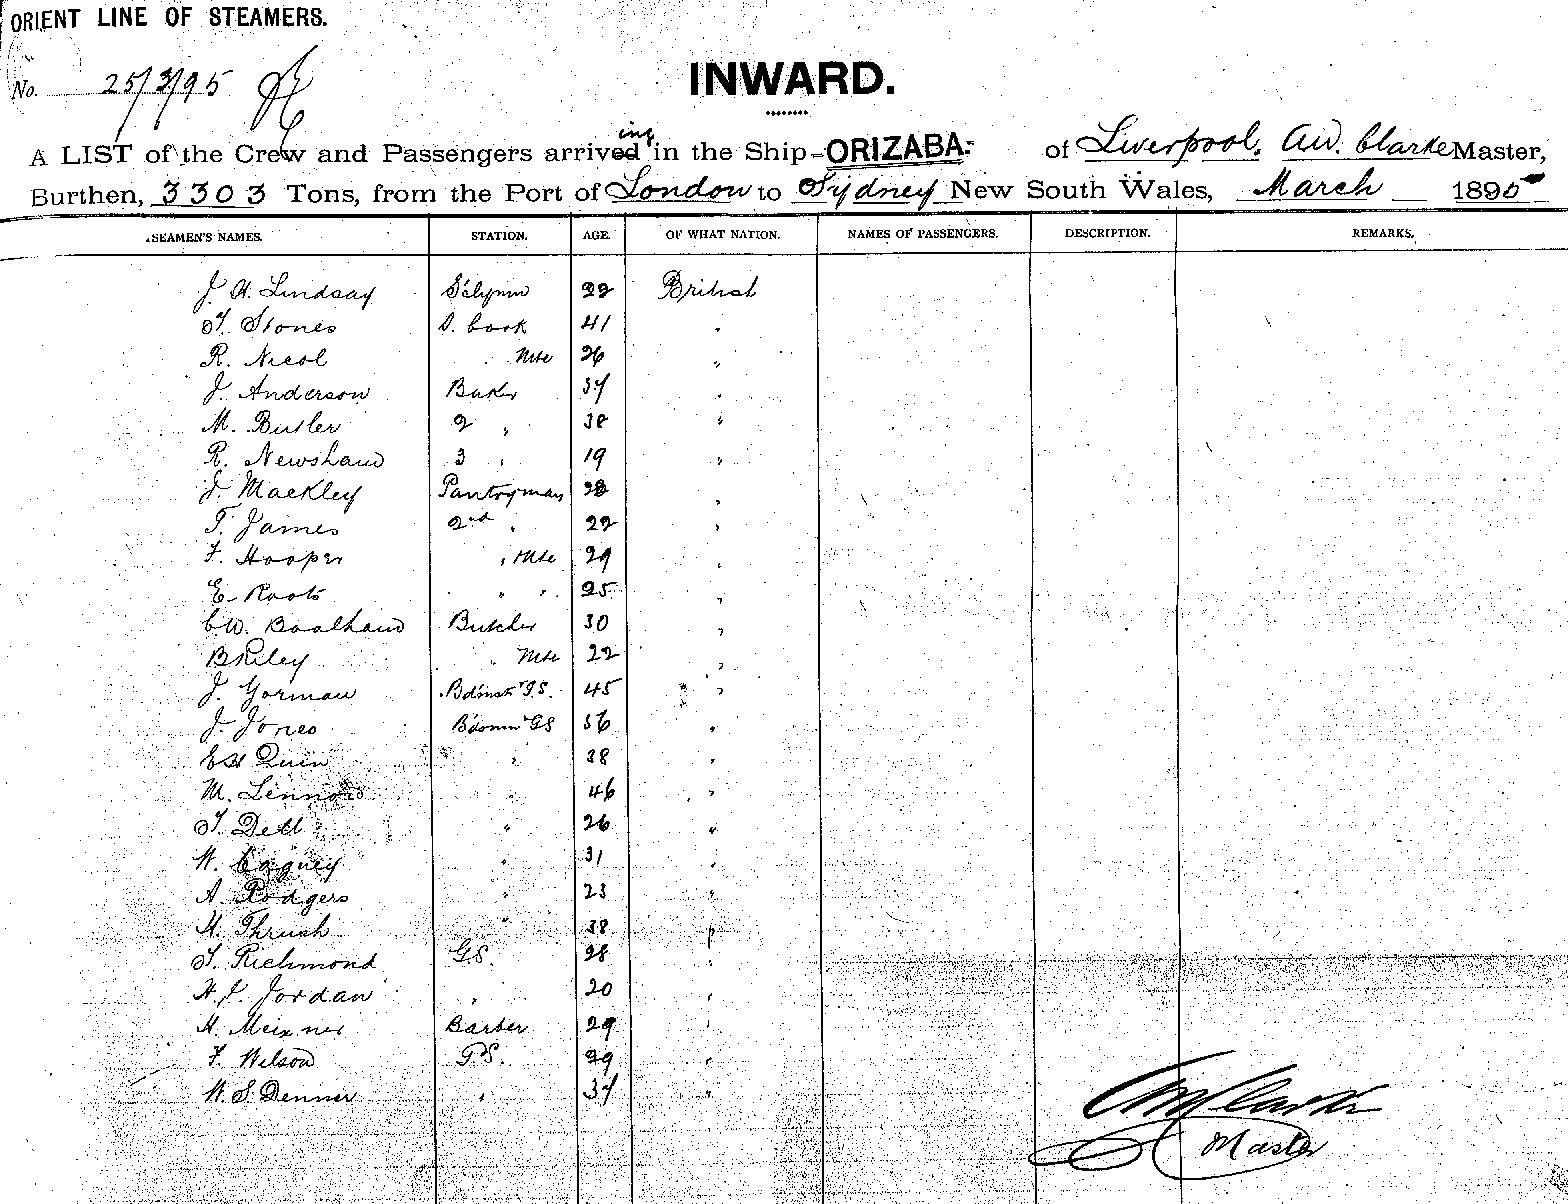 ORIENT LINE OF STEAMERS.
No. 25/3/95
INWARD.
ing
A LIST of the Crew and Passengers arrived in the Ship - ORIZABA. of Liverpool, AW. Clarke Master,
Burthen, 3303 Tons, from the Port of London to Sydney New South Wales, March 1895
SEAMEN'S NAMES. STATION. AGE. OF WHAT NATION. NAMES OF PASSENGERS. DESCRIPTION. REMARKS.
J. A. Lindsay 22 British
T. Stones S. Cook 41 "
R. Nicol Mte 26 "
J. Anderson Baker 37 "
M. Butler 2 " 38 "
R. Newsham 3 " 19 "
J. Mackley Pantryman 28 "
T. James 2nd " 22 "
F. Hooper " Mte 29 "
E. Roots " " 25 "
C.W. Boalham Butcher 30 "
B Riley " Mte 22 "
J. Gorman 45 "
J. Jones GS 36 "
Quin " 38 "
M. Lennord " 46 "
T. Dell " 26 "
W. Cagney " 31 "
A. Rodgers " 23 "
H. Thrush " 38 "
T. Richmond G.S. 28 "
H.J. Jordan " 20 "
H. Meixner Barber 29 "
F. Wilson 29 "
W. S. Denner " 37 "
AW Clarke
Master